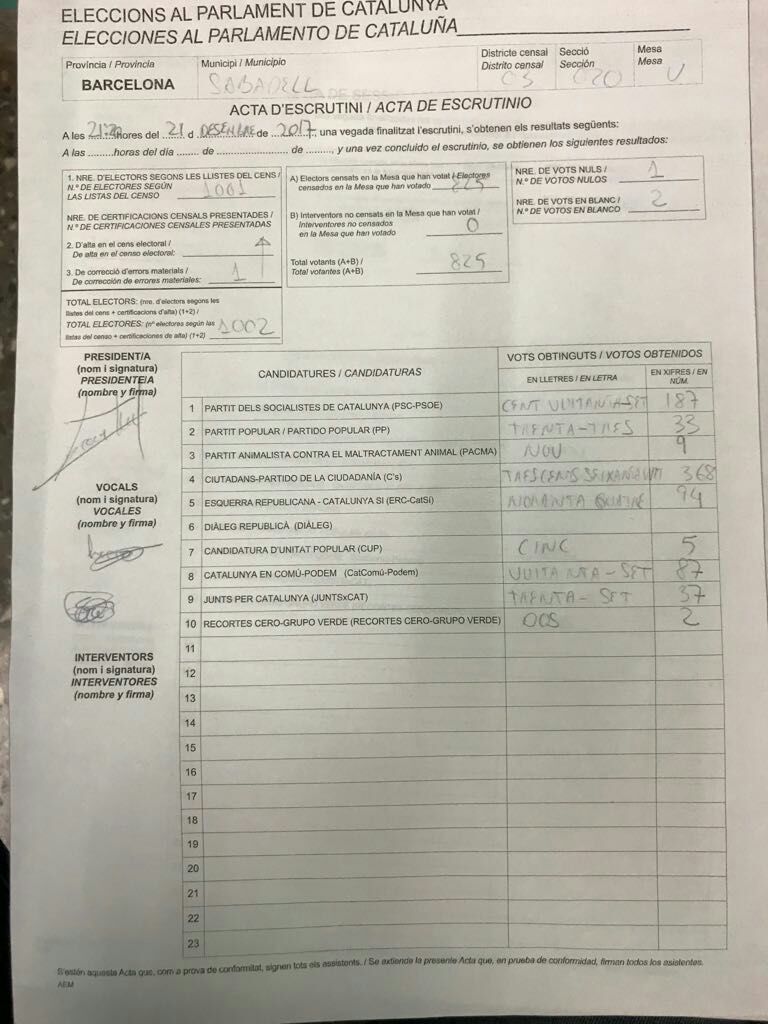 ELECCIONS AL PARLAMENT DE CATALUNYA
ELECCIONES AL PARLAMENTO DE CATALUÑA
Província / Provincia
BARCELONA
Municipi / Municipio
SABADELL
Districte censal
Distrito censal
03
Secció
Sección
020
Mesa
Mesa
U
ACTA D'ESCRUTINI / ACTA DE ESCRUTINIO
A les 21:20 hores del 21 d DESEMBRE de 2017, una vegada finalitzat l'escrutini, s'obtenen els resultats següents:
A las .........horas del día ....... de ........................ de ........., y una vez concluido el escrutinio, se obtienen los siguientes resultados:
1. NRE. D'ELECTORS SEGONS LES LLISTES DEL CENS /
N.º DE ELECTORES SEGÚN
LAS LISTAS DEL CENSO 1001
NRE. DE CERTIFICACIONS CENSALS PRESENTADES /
N.º DE CERTIFICACIONES CENSALES PRESENTADAS
2. D'alta en el cens electoral /
De alta en el censo electoral:
3. De correcció d'errors materials /
De corrección de errores materiales: 1
TOTAL ELECTORS: (nre. d'electors segons les
llistes del cens + certificacions d'alta) (1+2) /
TOTAL ELECTORES: (nº electores según las
listas del censo + certificaciones de alta) (1+2) 1002
A) Electors censats en la Mesa que han votat / Electores
censados en la Mesa que han votado 825
B) Interventors no censats en la Mesa que han votat /
Interventores no censados
en la Mesa que han votado 0
Total votants (A+B) /
Total votantes (A+B) 825
NRE. DE VOTS NULS /
N.º DE VOTOS NULOS 1
NRE. DE VOTS EN BLANC /
N.º DE VOTOS EN BLANCO 2
PRESIDENT/A
(nom i signatura)
PRESIDENTE/A
(nombre y firma)
VOCALS
(nom i signatura)
VOCALES
(nombre y firma)
INTERVENTORS
(nom i signatura)
INTERVENTORES
(nombre y firma)
CANDIDATURES / CANDIDATURAS
VOTS OBTINGUTS / VOTOS OBTENIDOS
EN LLETRES / EN LETRA
EN XIFRES / EN NÚM.
1 PARTIT DELS SOCIALISTES DE CATALUNYA (PSC-PSOE) CENT VUITANTA-SET 187
2 PARTIT POPULAR / PARTIDO POPULAR (PP) TRENTA-TRES 33
3 PARTIT ANIMALISTA CONTRA EL MALTRACTAMENT ANIMAL (PACMA) NOU 9
4 CIUTADANS-PARTIDO DE LA CIUDADANÍA (C's) TRESCENTS SEIXANAVUIT 368
5 ESQUERRA REPUBLICANA - CATALUNYA SI (ERC-CatSí) NORANTA QUATRE 94
6 DIÀLEG REPUBLICÀ (DIÀLEG)
7 CANDIDATURA D'UNITAT POPULAR (CUP) CINC 5
8 CATALUNYA EN COMÚ-PODEM (CatComú-Podem) VUITANTA-SET 87
9 JUNTS PER CATALUNYA (JUNTSxCAT) TRENTA-SET 37
10 RECORTES CERO-GRUPO VERDE (RECORTES CERO-GRUPO VERDE) DOS 2
11
12
13
14
15
16
17
18
19
20
21
22
23
S'estén aquesta Acta que, com a prova de conformitat, signen tots els assistents. / Se extiende la presente Acta que, en prueba de conformidad, firman todos los asistentes.
AEM